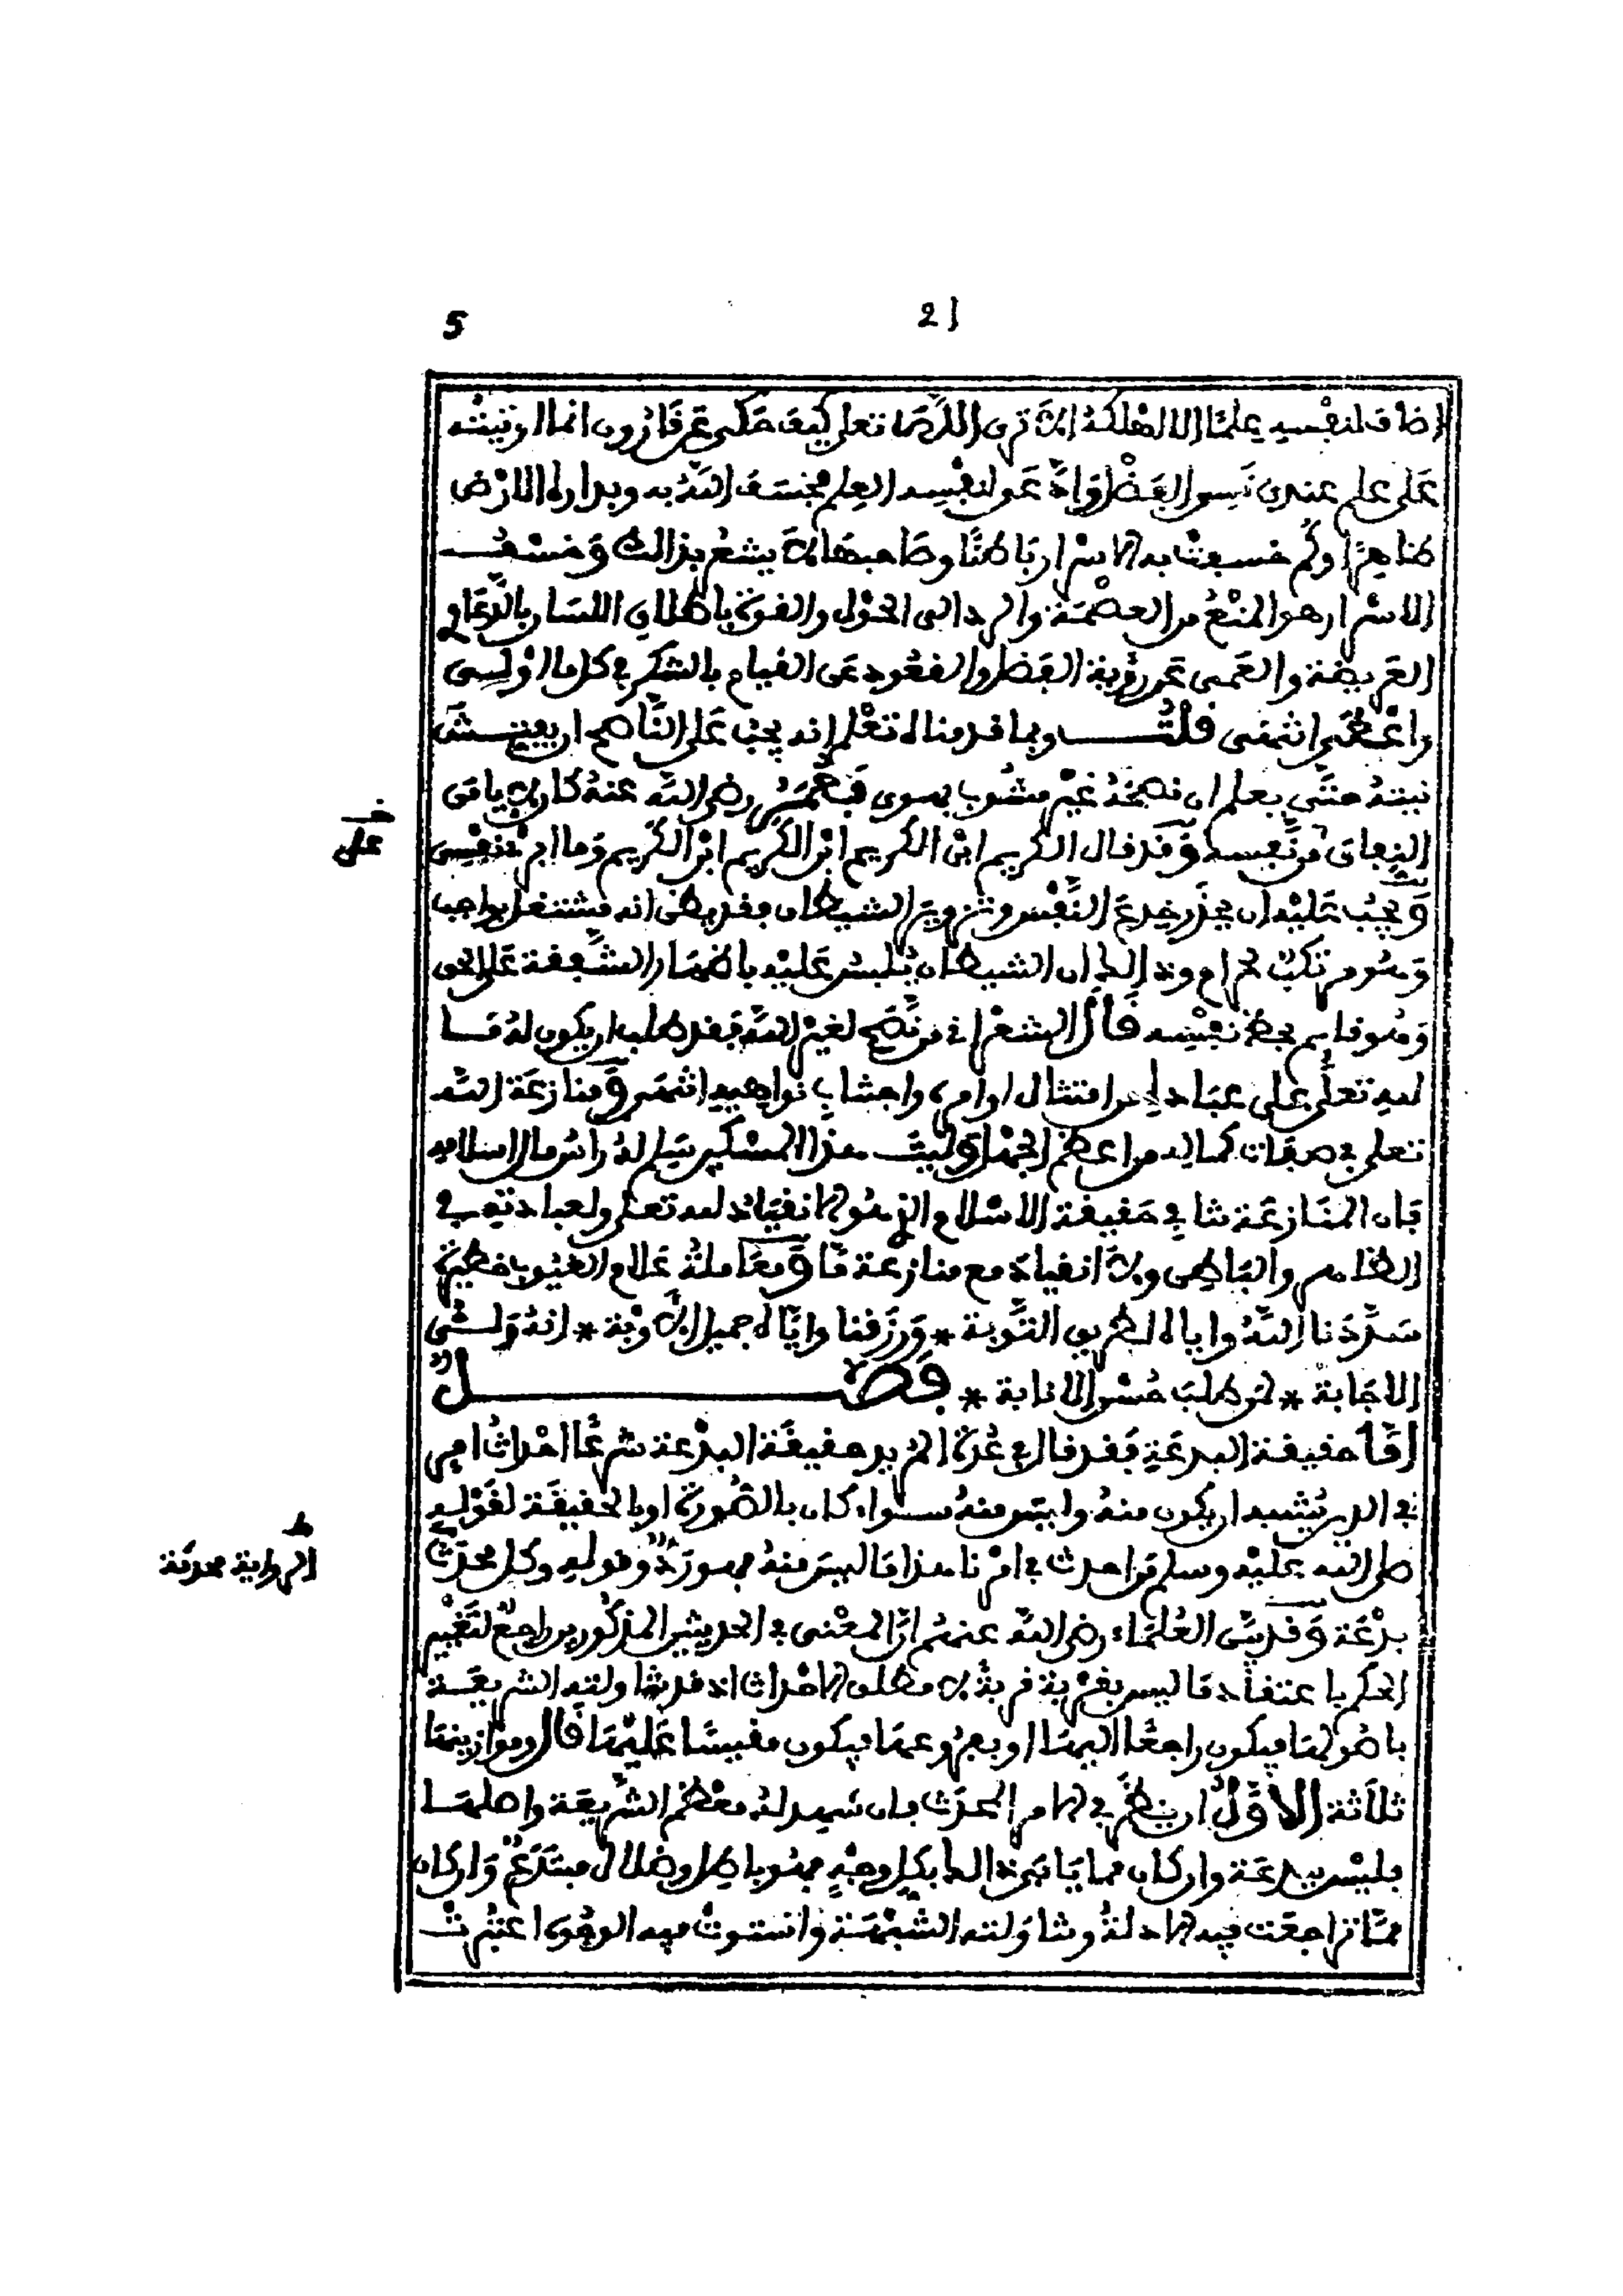 5
21
اضاف لنفسه علما الا اهلكه الا ترى الله تعلى كيف حكى عن قارون انما اوتيته
على علم عندى نسى الفضل وادعى لنفسه العلم فخسف الله به وبداره الارض
ظاهرا وكم خسفت به الاسرار باطنا وصاحبها لا يشعر بذالك وخسف
الاسرار هو المنع من العصمة والرد الى الحول والقوة باطلاق اللسان بالدعاوى
العريضة والعمى عن رؤية الفضل والقعود عن القيام بالشكر فى كل ما اولى
واعطى انتهى قلت وبما قدمناه تعلم انه يجب على الناصح ان يفتش
نيته حتى يعلم ان نصحه غير مشوب بهوى فعمر رضى الله عنه كان لا يامن
النفاق من نفسه وقد قال الكريم ابن الكريم ابن الكريم ابن الكريم وما ابرئ نفسى
ويجب عليه ان يحذر خدع النفس وتزوير الشيطان فقد يظن انه مشتغل بواجب
وهو مرتكب لحرام وذالك ان الشيطان يلبس عليه باظهار الشفقة على الحق
وهو قايم بحظ نفسه قال الشعرانى من نصح لغير الله فقد طلب ان يكون له ما
لله تعلى على عباده من امتثال اوامره واجتناب نواهيه انتهى ومنازعة الله
تعلى فى صفات كماله من اعظم الجهل وليت هذا المسكين سلم له راس مال اسلامه
فان المنازعة تنافى حقيقة الاسلام الذى هو الانقياد لله تعلى ولعبادته فى
الظاهر والباطن ولا انقياد مع منازعة ما ومعاملة علام الغيوب خطيرة
سددنا الله واياه لطريق التوبة * ورزقنا واياه جميل الاوبة * انه ولى
الاجابة * لمن طلب حسن الانابة * فصل
اما حقيقة البدعة فقد قال فى عدة المريد حقيقة البدعة شرعا احداث امر
فى الدين يشبه ان يكون منه وليس منه سواء كان بالصورة او بالحقيقة لقوله
صلى الله عليه وسلم من احدث فى امرنا هذا ما ليس منه فهو رد وقوله وكل محدث
بدعة وقد بين العلماء رضى الله عنهم ان المعنى فى الحديثين المذكورين راجع لتغيير
الحكم باعتقاد ما ليس بقربة قربة لا مطلق الاحداث اذ قد تناولته الشريعة
باصولها فيكون راجعا اليها او بفروعها فيكون مقيسا عليها قال وموازينها
ثلاثة الاول ان ينظر فى الامر المحدث فان شهد له معظم الشريعة واصلها
فليس ببدعة وان كان مما يابى ذالك بكل وجه فهو باطل وضلال مبتدع وان كان
مما تراجعت فيه الادلة وتناولته الشبهة واستوت فيه الوجوه اعتبرت
خـ
على
ط
الرواية محدثة